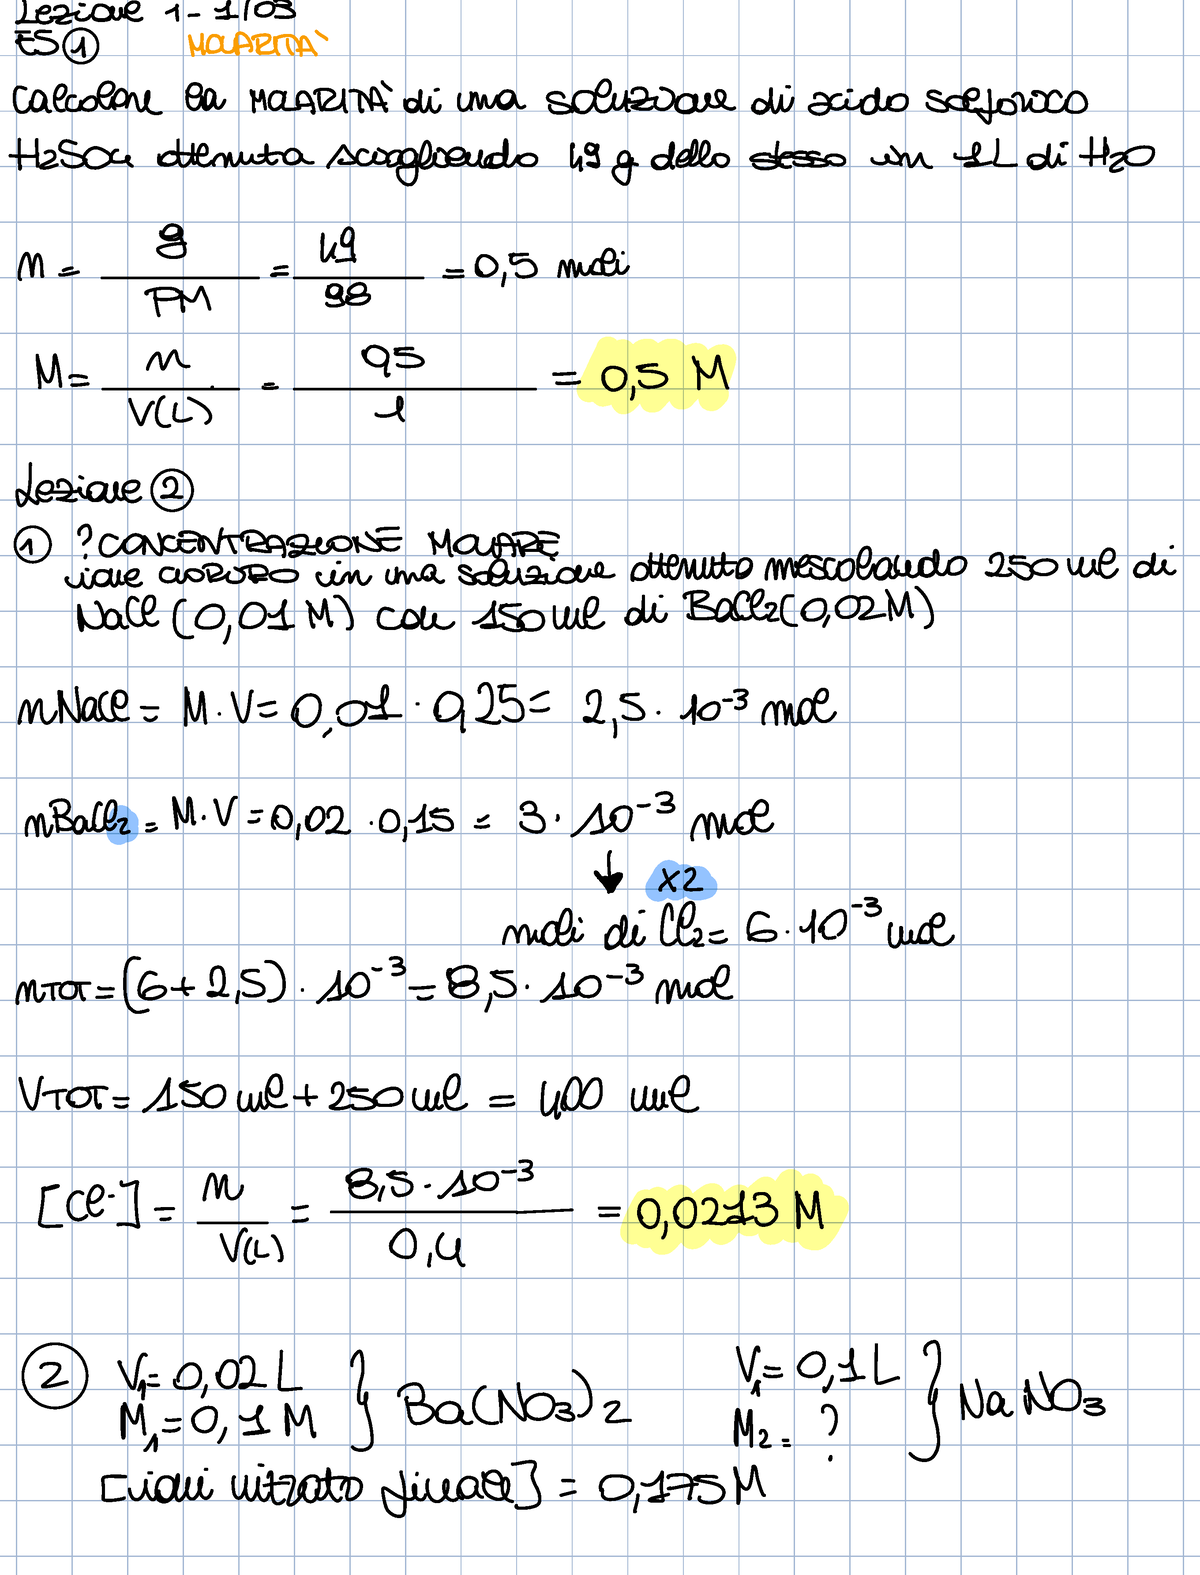 Lezione 1 - 1/03
ES ① MOLARITÀ
Calcolare la MOLARITÀ di una soluzione di acido solforico
H2SO4 ottenuta sciogliendo 49 g dello stesso in 1L di H2O
n = g / PM = 49 / 98 = 0,5 moli
M = n / V(L) = 0,5 / 1 = 0,5 M
Lezione ②
① ? CONCENTRAZIONE MOLARE
ione CLORURO in una soluzione ottenuto mescolando 250 ml di
NaCl (0,01 M) con 150 ml di BaCl2 (0,02M)
nNaCl = M · V = 0,01 · 0,25 = 2,5 · 10⁻³ mol
nBaCl2 = M · V = 0,02 · 0,15 = 3 · 10⁻³ mol
↓ x2
moli di Cl2 = 6 · 10⁻³ mol
nTOT = (6 + 2,5) · 10⁻³ = 8,5 · 10⁻³ mol
VTOT = 150 ml + 250 ml = 400 ml
[Cl⁻] = n / V(L) = 8,5 · 10⁻³ / 0,4 = 0,0213 M
② V1 = 0,02 L } Ba(NO3)2 V1 = 0,1 L } NaNO3
M1 = 0,1 M M2 = ?
[ioni nitrato finale] = 0,175 M